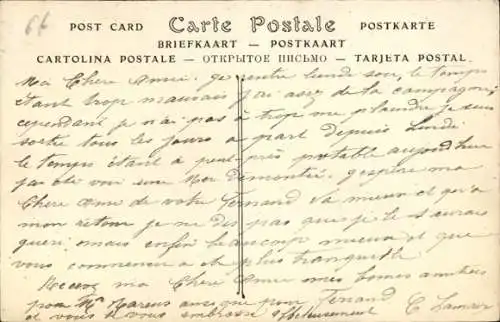 66
POST CARD Carte Postale POSTKARTE
BRIEFKAART — POSTKAART
CARTOLINA POSTALE — ОТКРЫТОЕ ПИСЬМО — TARJETA POSTAL
Ma Chere Amie. je rentre lundi soir, le temps
étant trop mauvais j'ai assez de la campagne
cependant je n'ai pas à trop me plaindre je suis
sortie tous les jours a part depuis Lundi
le temps étant a peu près potable aujourd'hui
j'ai été voir une Mer démontée. j'espère ma
Chere Amie de votre Fernand va mieux et qu'a
mon retour je ne dis pas que je le saurais
gueri mais enfin beaucoup mieux et que
vous commencez a et plus tranquille
Recevez ma Chere Amie mes bonnes amitiés
pour Mr ainsi que pour Fernand C.
et vous je vous embrasse affectueusement